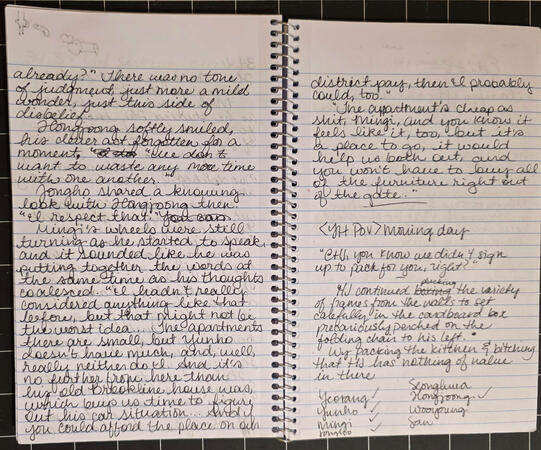 already?" There was no tone
of judgment just more a mild
wonder, just this side of
disbelief.
Hongjoong softly smiled,
his clever act forgotten for a
moment, "We don't
want to waste any more time
with one another."
Jongho shared a knowing
look with Hongjoong then
"I'll respect that." You can
Mingi's wheels were still
turning as he started to speak,
and it sounded like he was
putting together the words at
the same time as his thoughts
coalesced. "I hadn't really
considered anything like that
before, but that might not be
the worst idea... The apartments
there are small, but Yunho
doesn't have much, and, well,
really neither do I. And it's
no further from here than
his old Brookline house was,
which buys us time to figure
out his car situation... And if
you could afford the place on our
district pay, then I probably
could, too."
"The apartment's cheap as
shit, Mingi, and you know it
feels like it, too, but it's
a place to go, it would
help us both out, and
you won't have to buy all
of the furniture right out
of the gate."
<YH POV> moving day
you know we didn't sign
up to pack for you, right?"
continued packing the variety
of frames from the walls to set
carefully in the cardboard box
precariously perched on the
folding chair to his left.
Wy packing the kitchen & bitching
that YH has nothing of value
in there
Seonghwa
Yeosang ✓ Hongjoong ✓
Yunho ✓ Wooyoung
Mingi ✓ San
Jongho